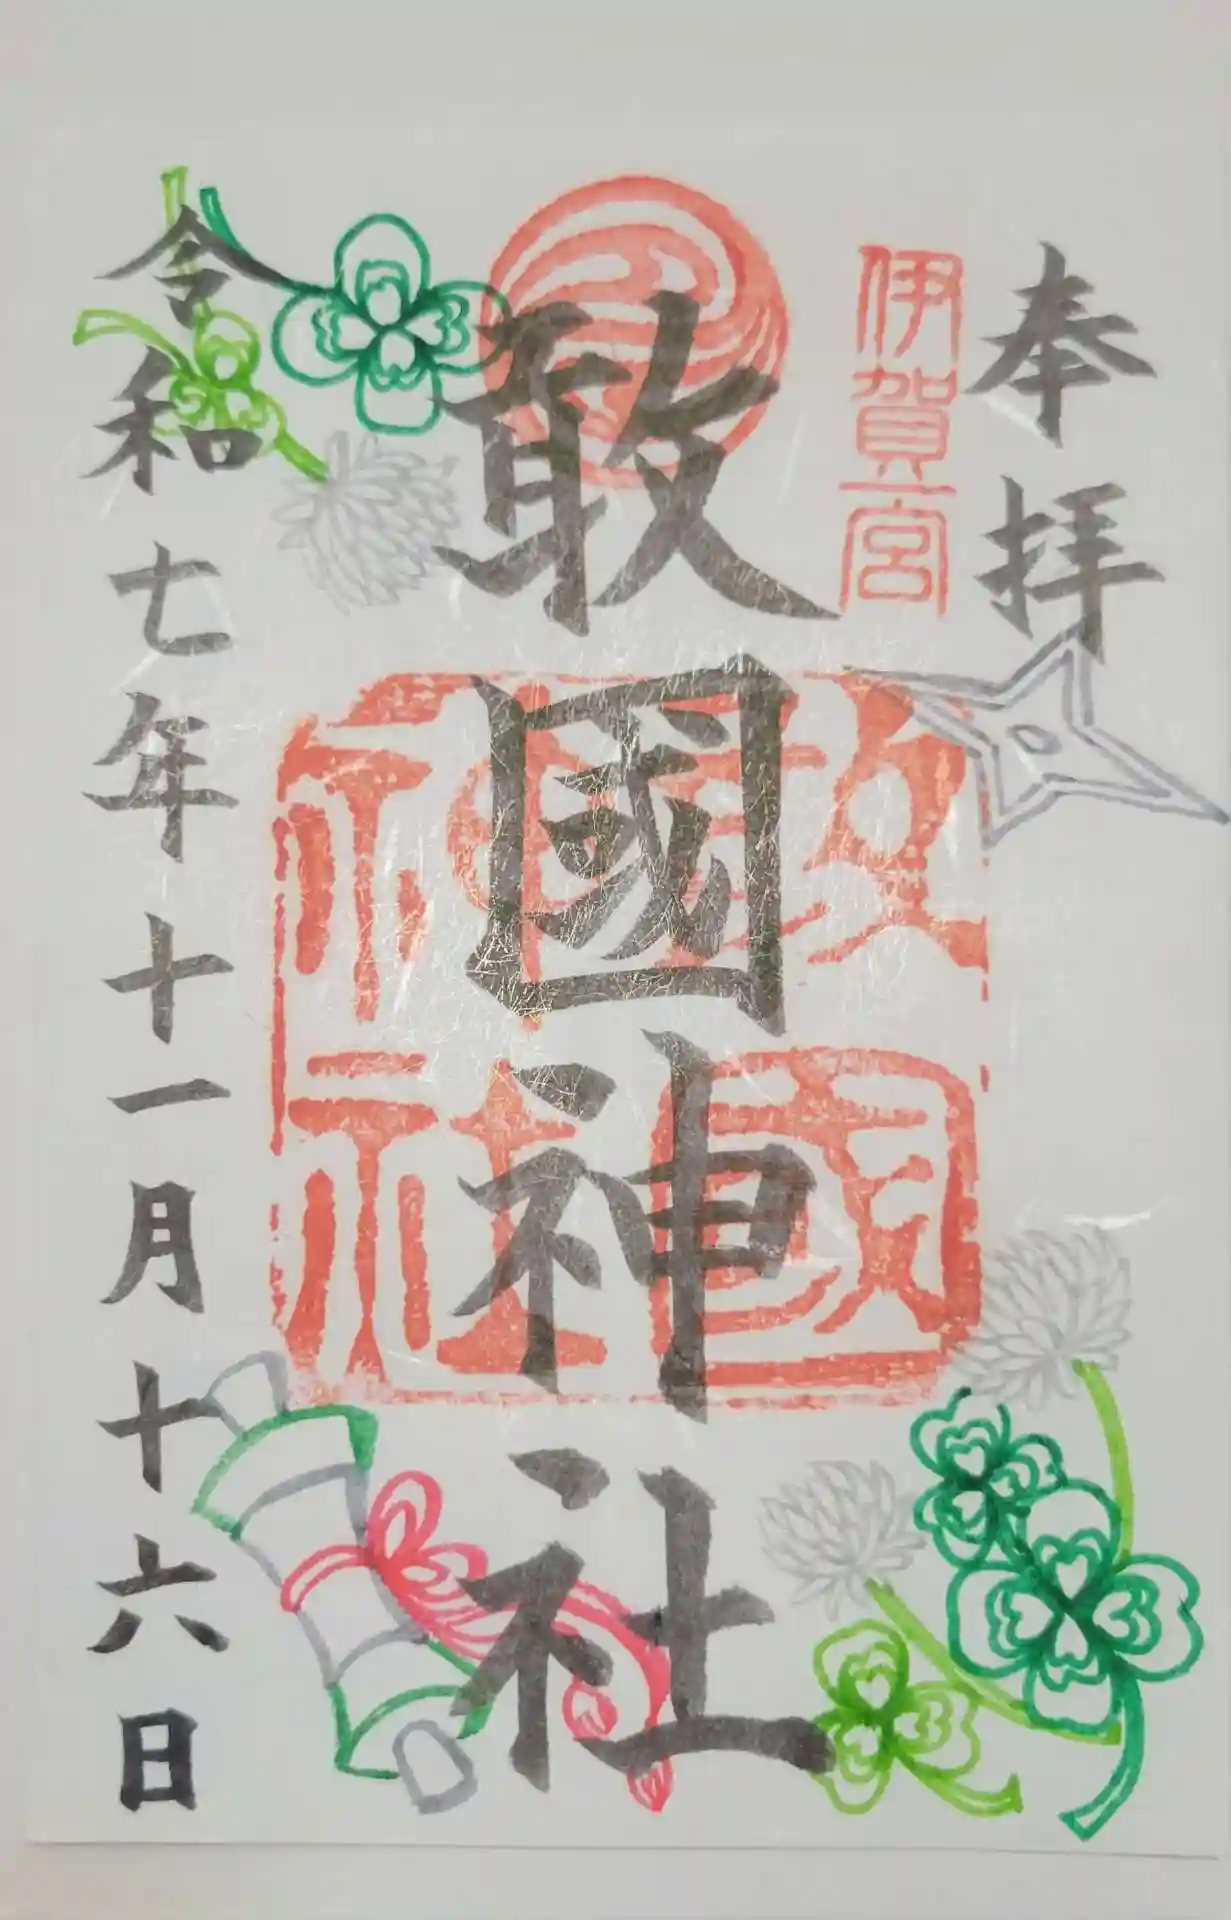 奉拝
伊賀一宮
敢國神社
敢國
神社
令和七年十一月十六日